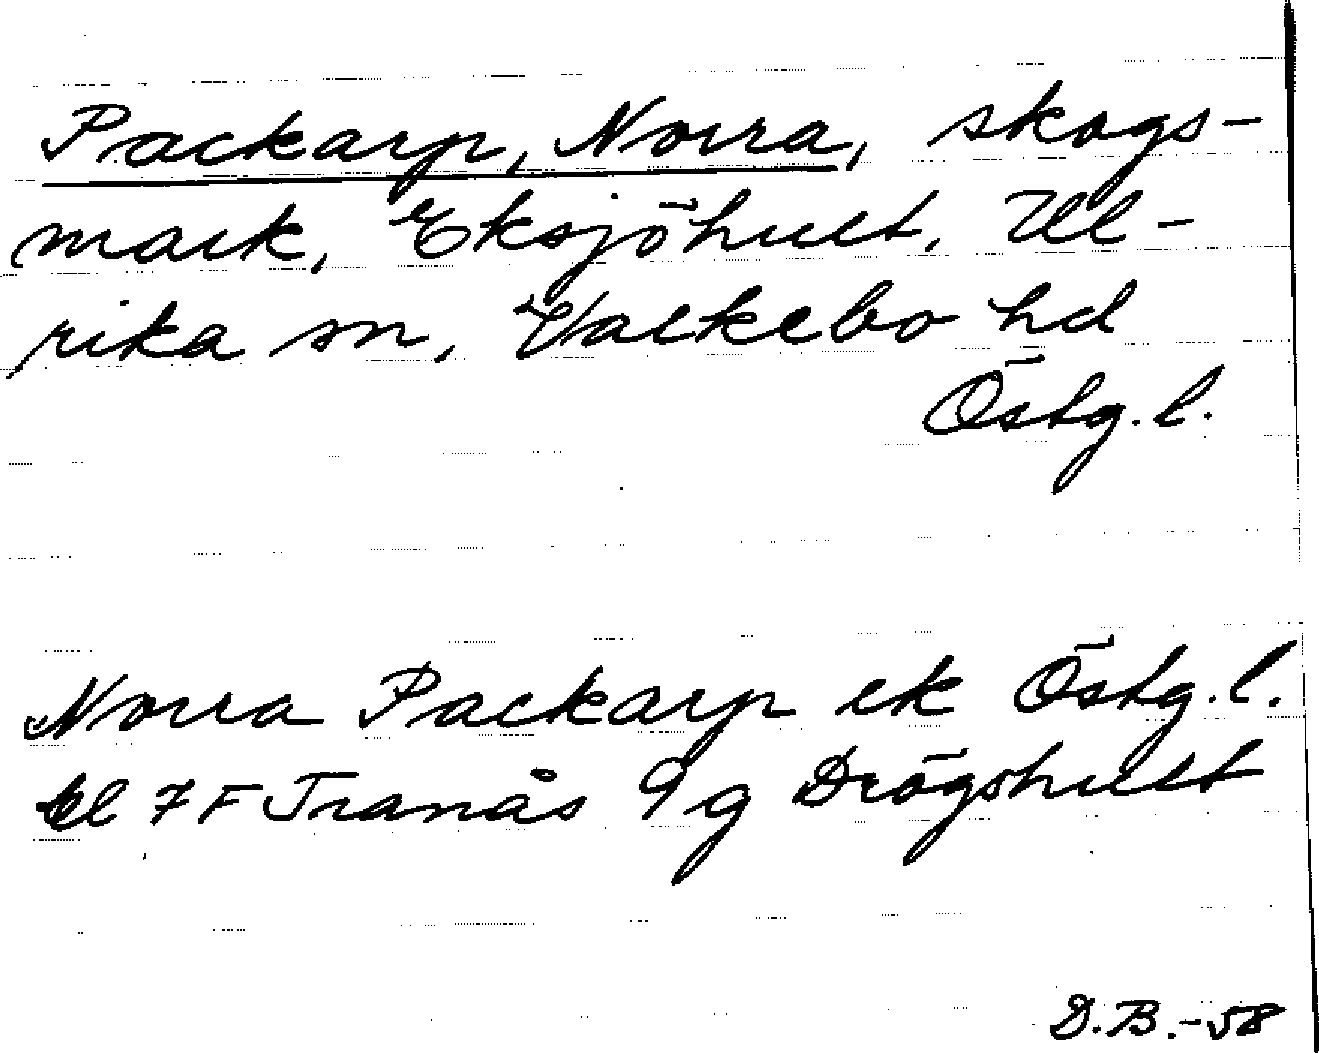 Packarp, Norra, skogs-
mark, Eksjöhult, Ul-
rika sn, Valkebo hd
Östg. l.
Norra Packarp ek Östg. l.
bl 7F Tranås 9g Drögshult
D.B.-58